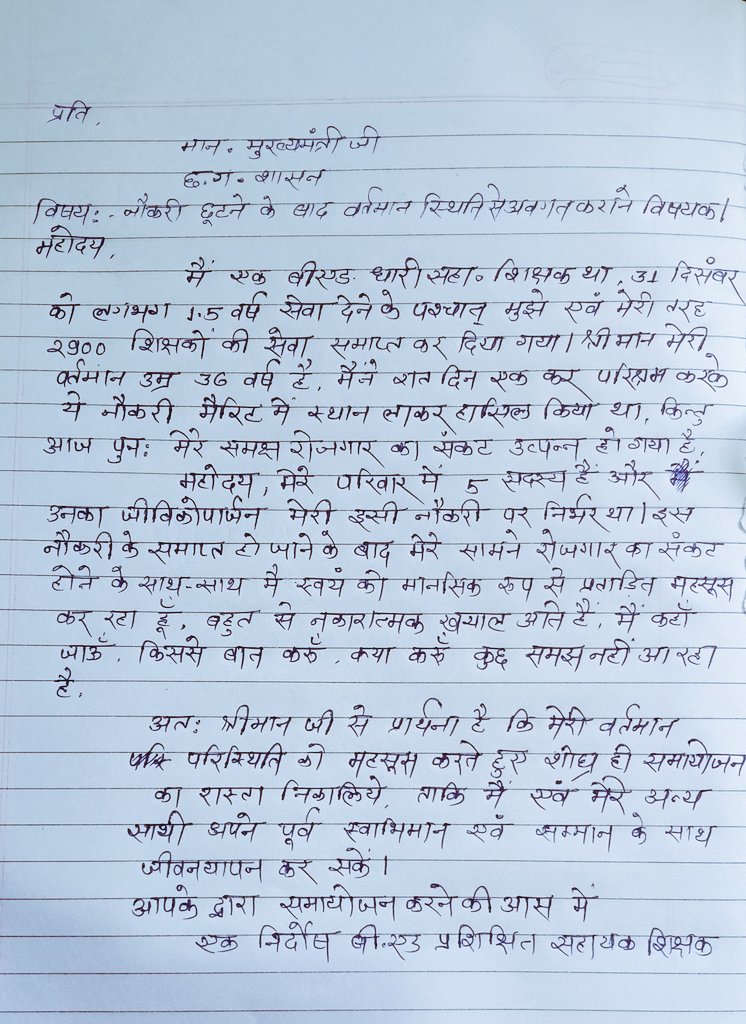 प्रति,
मान. मुख्यमंत्री जी
छ.ग. शासन
विषय:- नौकरी छूटने के बाद वर्तमान स्थिति से अवगत कराने विषयक।
महोदय,
मैं एक बीएड धारी सहा. शिक्षक था, 31 दिसंबर
को लगभग 1.5 वर्ष सेवा देने के पश्चात् मुझे एवं मेरी तरह
2900 शिक्षकों की सेवा समाप्त कर दिया गया। श्रीमान मेरी
वर्तमान उम्र 36 वर्ष है, मैंने रात दिन एक कर परिश्रम करके
ये नौकरी मैरिट में स्थान लाकर हासिल किया था, किन्तु
आज पुन: मेरे समक्ष रोजगार का संकट उत्पन्न हो गया है,
महोदय, मेरे परिवार में 5 सदस्य हैं और
उनका जीविकोपार्जन मेरी इसी नौकरी पर निर्भर था। इस
नौकरी के समाप्त हो जाने के बाद मेरे सामने रोजगार का संकट
होने के साथ-साथ मै स्वयं को मानसिक रूप से प्रताडित महसूस
कर रहा हूँ, बहुत से नकारात्मक ख्याल आते हैं, मैं कहाँ
जाऊँ, किससे बात करूँ, क्या करूँ कुछ समझ नहीं आ रहा
है,
अत: श्रीमान जी से प्रार्थना है कि मेरी वर्तमान
परिस्थिति को महसूस करते हुए शीघ्र ही समायोजन
का रास्ता निकालिये, ताकि मैं एवं मेरे अन्य
साथी अपने पूर्व स्वाभिमान एवं सम्मान के साथ
जीवनयापन कर सकें।
आपके द्वारा समायोजन करने की आस में
एक निर्दोष बी.एड प्रशिक्षित सहायक शिक्षक